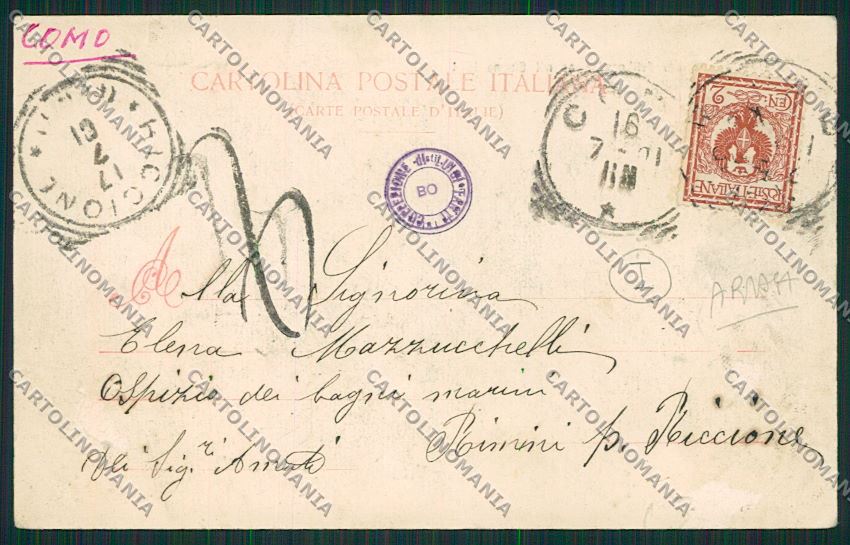 COMO
CARTOLINA POSTALE ITALIANA
(CARTE POSTALE D'ITALIE)
RICCIONE
17
7
01
16
7
01
CEN. 2
POSTE ITALIANE
BO
T
Alla Signorina
Elena Mazzucchelli
Ospizio dei bagni marini
Rimini p. Riccione
Dei Sig.ri Amati
CARTOLINOMANIA